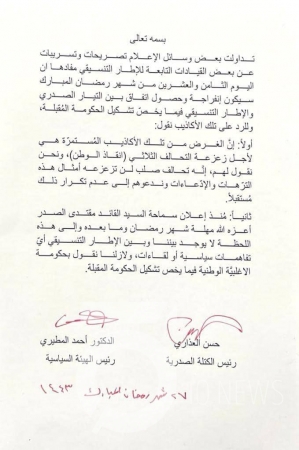 بسمه تعالى
تداولت بعض وسائل الإعلام تصريحات وتسريبات
عن بعض القيادات التابعة للإطار التنسيقي مفادها ان
اليوم الثامن والعشرين من شهر رمضان المبارك
سيكون إنفراجة وحصول اتفاق بين التيار الصدري
والإطار التنسيقي فيما يخصّ تشكيل الحكومة المُقبلة،
وللرد على تلك الأكاذيب نقول:
اولاً: إنّ الغرض من تلك الأكاذيب المُستمرّة هي
لأجل زعزعة التحالف الثلاثي (انقاذ الوطن)، ونحن
نقول لهم، إنَّه تحالف صلب لن تزعزعه أمثال هذه
الترّهات والإدّعاءات وندعوهم إلى عدم تكرار ذلك
مُستقبلاً.
ثانيـاً: مُنذ إعلان سماحة السيد القائد مقتدى الصدر
أعزه الله مهلة شهر رمضان وما بعده وإلى هذه
اللحظة لا يوجد بيننا وبين الإطار التنسيقي أيّ
تفاهمات سياسية أو لقاءات، ولازلنا نقول بحكومة
الاغلبيّة الوطنية فيما يخص تشكيل الحكومة المقبلة.
حسن العذاري
رئيس الكتلة الصدرية
الدكتور أحمد المطيري
رئيس الهيئة السياسية
٢٧ شهر رمضان المبارك ١٤٤٣